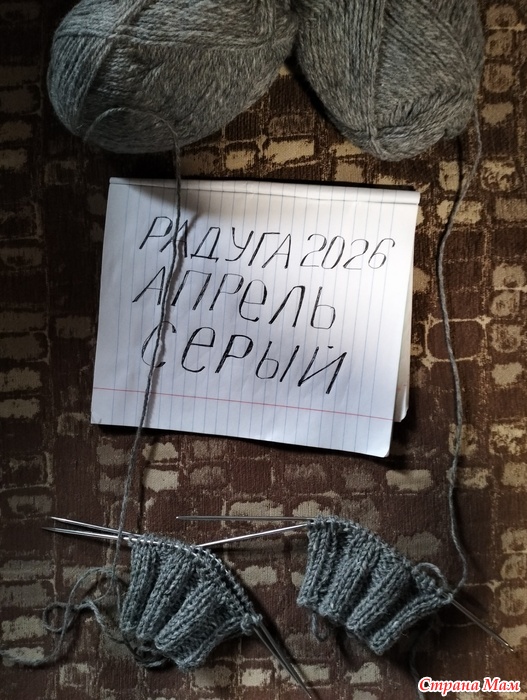 РАДУГА 2026
АПРеЛЬ
СеРЫЙ
Страна Мам